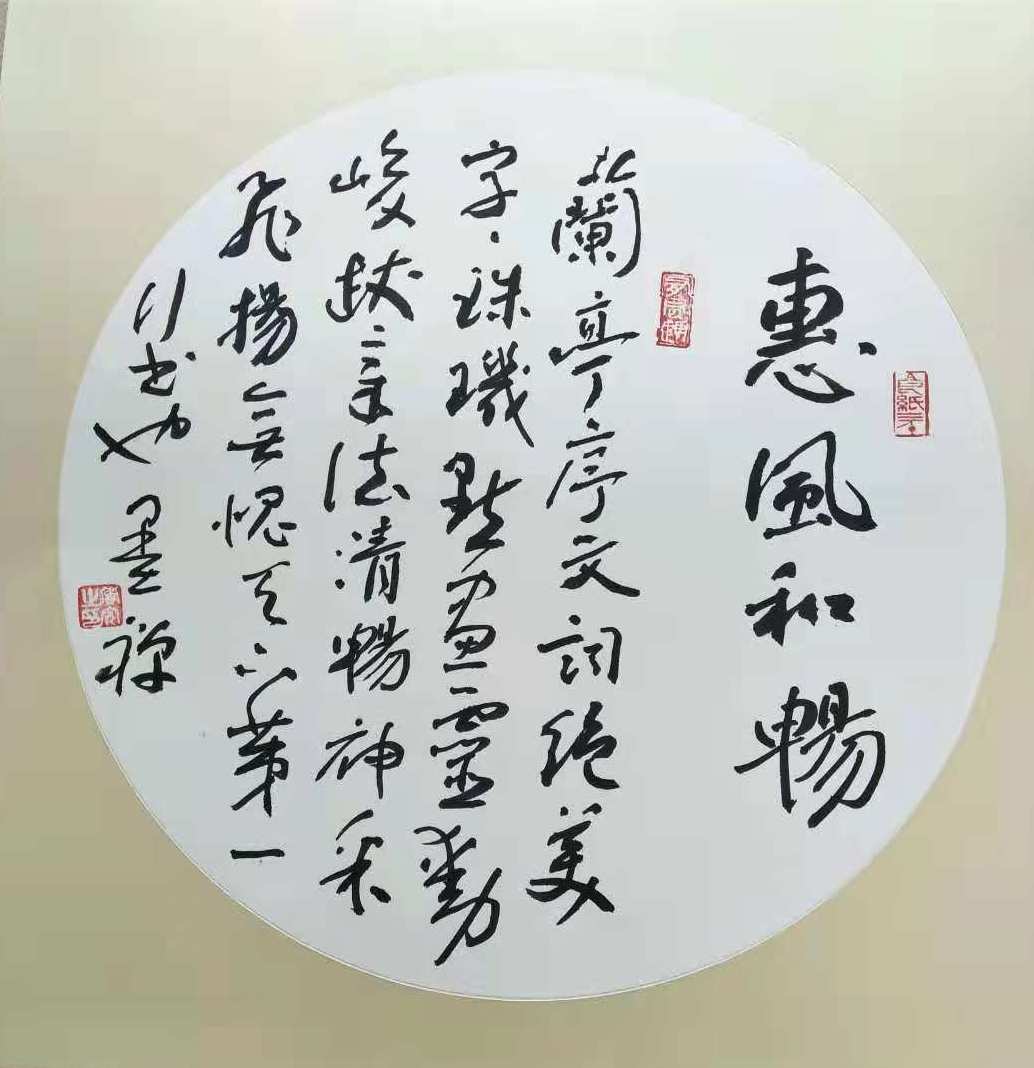 惠風和暢
蘭亭序文詞絕美
字、珠璣點畫靈動
峻拔章法清暢神采
飛揚無愧天下第一
行书也 墨禪